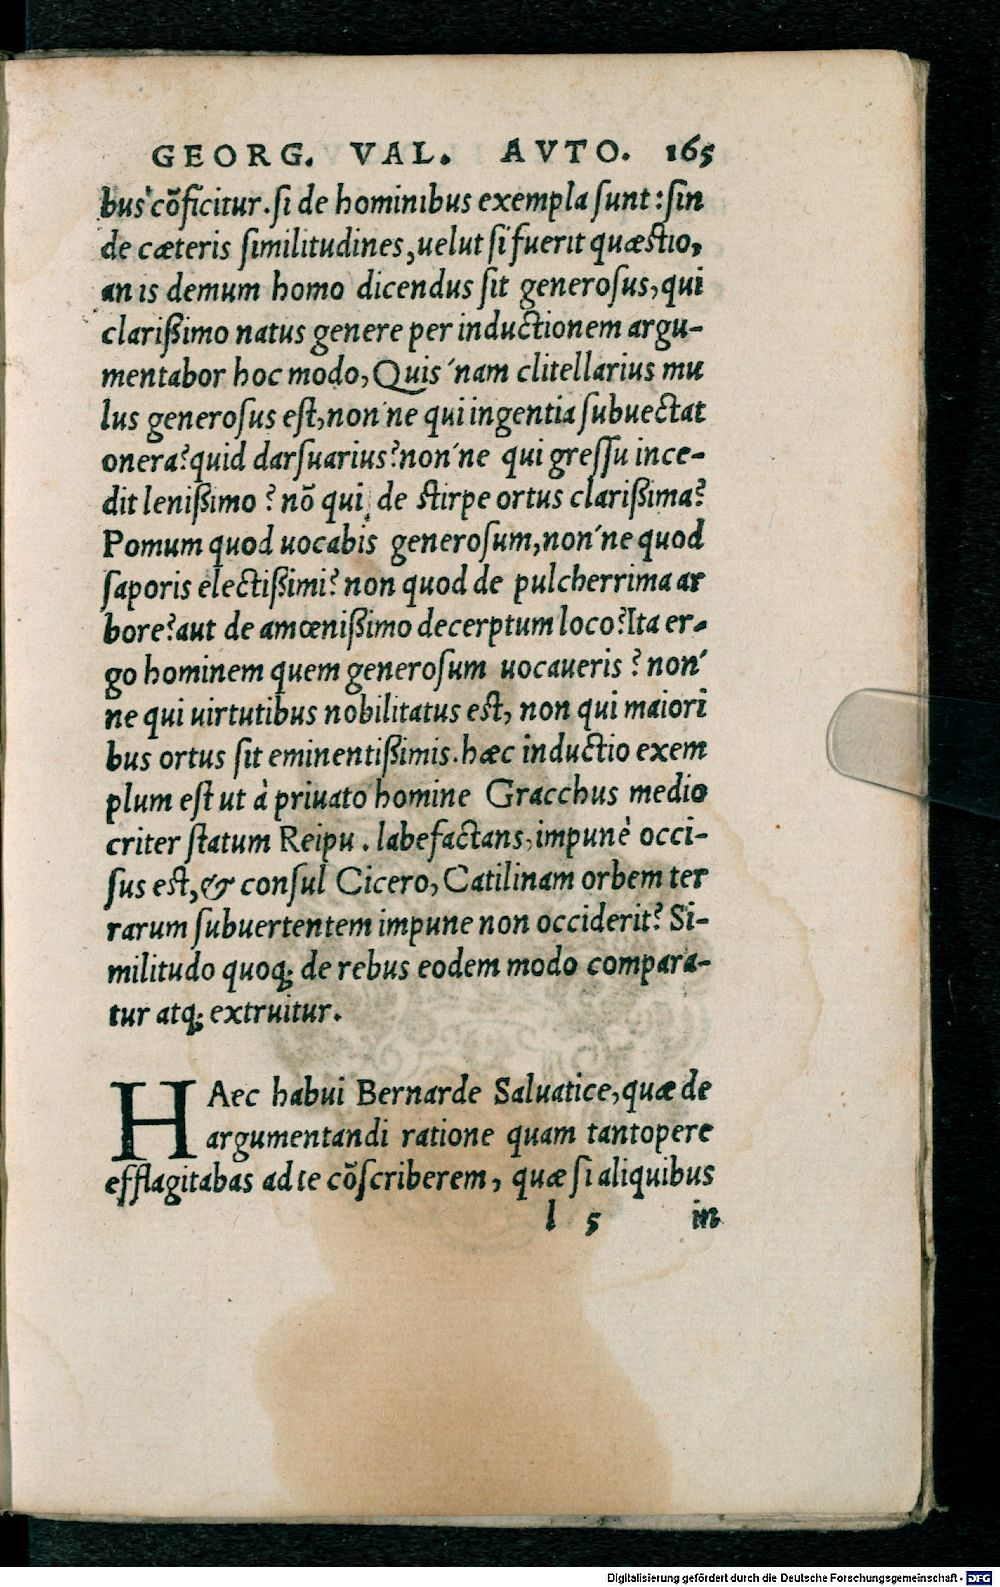 GEORG. VAL. AVTO. 165
bus cõficitur. ſi de hominibus exempla ſunt: ſin
de cæteris ſimilitudines, uelut ſi fuerit quæſtio,
an is demum homo dicendus ſit generoſus, qui
clarißimo natus genere per inductionem argu-
mentabor hoc modo, Quis´nam clitellarius mu
lus generoſus eſt, non´ne qui ingentia ſubuectat
onera? quid darſuarius? non´ne qui greſſu ince-
dit lenißimo? nõ qui de ſtirpe ortus clarißima?
Pomum quod uocabis generoſum, non´ne quod
ſaporis electißimi? non quod de pulcherrima ar
bore? aut de amœnißimo decerptum loco? Ita er-
go hominem quem generoſum uocaueris? non´
ne qui uirtutibus nobilitatus eſt, non qui maiori
bus ortus ſit eminentißimis. hæc inductio exem
plum eſt ut à priuato homine Gracchus medio
criter ſtatum Reipu. labefactans, impunè occi-
ſus eſt, & conſul Cicero, Catilinam orbem ter
rarum ſubuertentem impune non occiderit? Si-
militudo quoq; de rebus eodem modo compara-
tur atq; extruitur.
HAec habui Bernarde Saluatice, quæ de
argumentandi ratione quam tantopere
efflagitabas ad te cõſcriberem, quæ ſi aliquibus
l 5 in
Digitalisierung gefördert durch die Deutsche Forschungsgemeinschaft - DFG